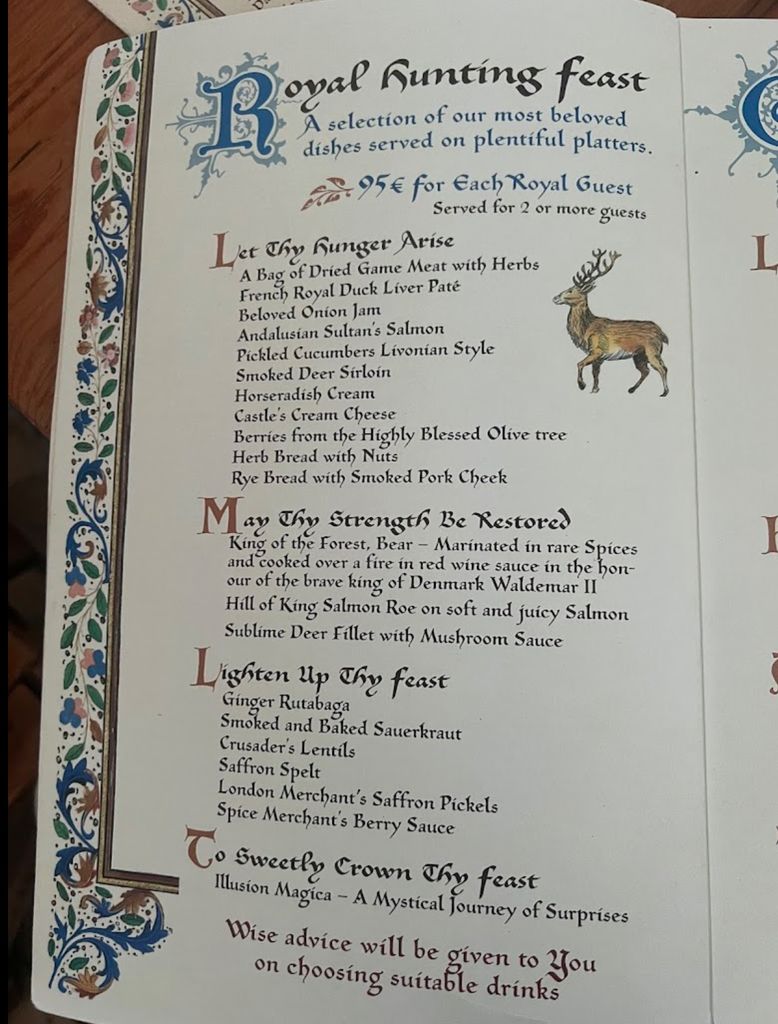 Royal Hunting Feast
A selection of our most beloved
dishes served on plentiful platters.
95€ for Each Royal Guest
Served for 2 or more guests
Let Thy Hunger Arise
A Bag of Dried Game Meat with Herbs
French Royal Duck Liver Paté
Beloved Onion Jam
Andalusian Sultan's Salmon
Pickled Cucumbers Livonian Style
Smoked Deer Sirloin
Horseradish Cream
Castle's Cream Cheese
Berries from the Highly Blessed Olive tree
Herb Bread with Nuts
Rye Bread with Smoked Pork Cheek
May Thy Strength Be Restored
King of the Forest, Bear – Marinated in rare Spices
and cooked over a fire in red wine sauce in the hon-
our of the brave king of Denmark Waldemar II
Hill of King Salmon Roe on soft and juicy Salmon
Sublime Deer Fillet with Mushroom Sauce
Lighten Up Thy Feast
Ginger Rutabaga
Smoked and Baked Sauerkraut
Crusader's Lentils
Saffron Spelt
London Merchant's Saffron Pickels
Spice Merchant's Berry Sauce
To Sweetly Crown Thy Feast
Illusion Magica – A Mystical Journey of Surprises
Wise advice will be given to You
on choosing suitable drinks